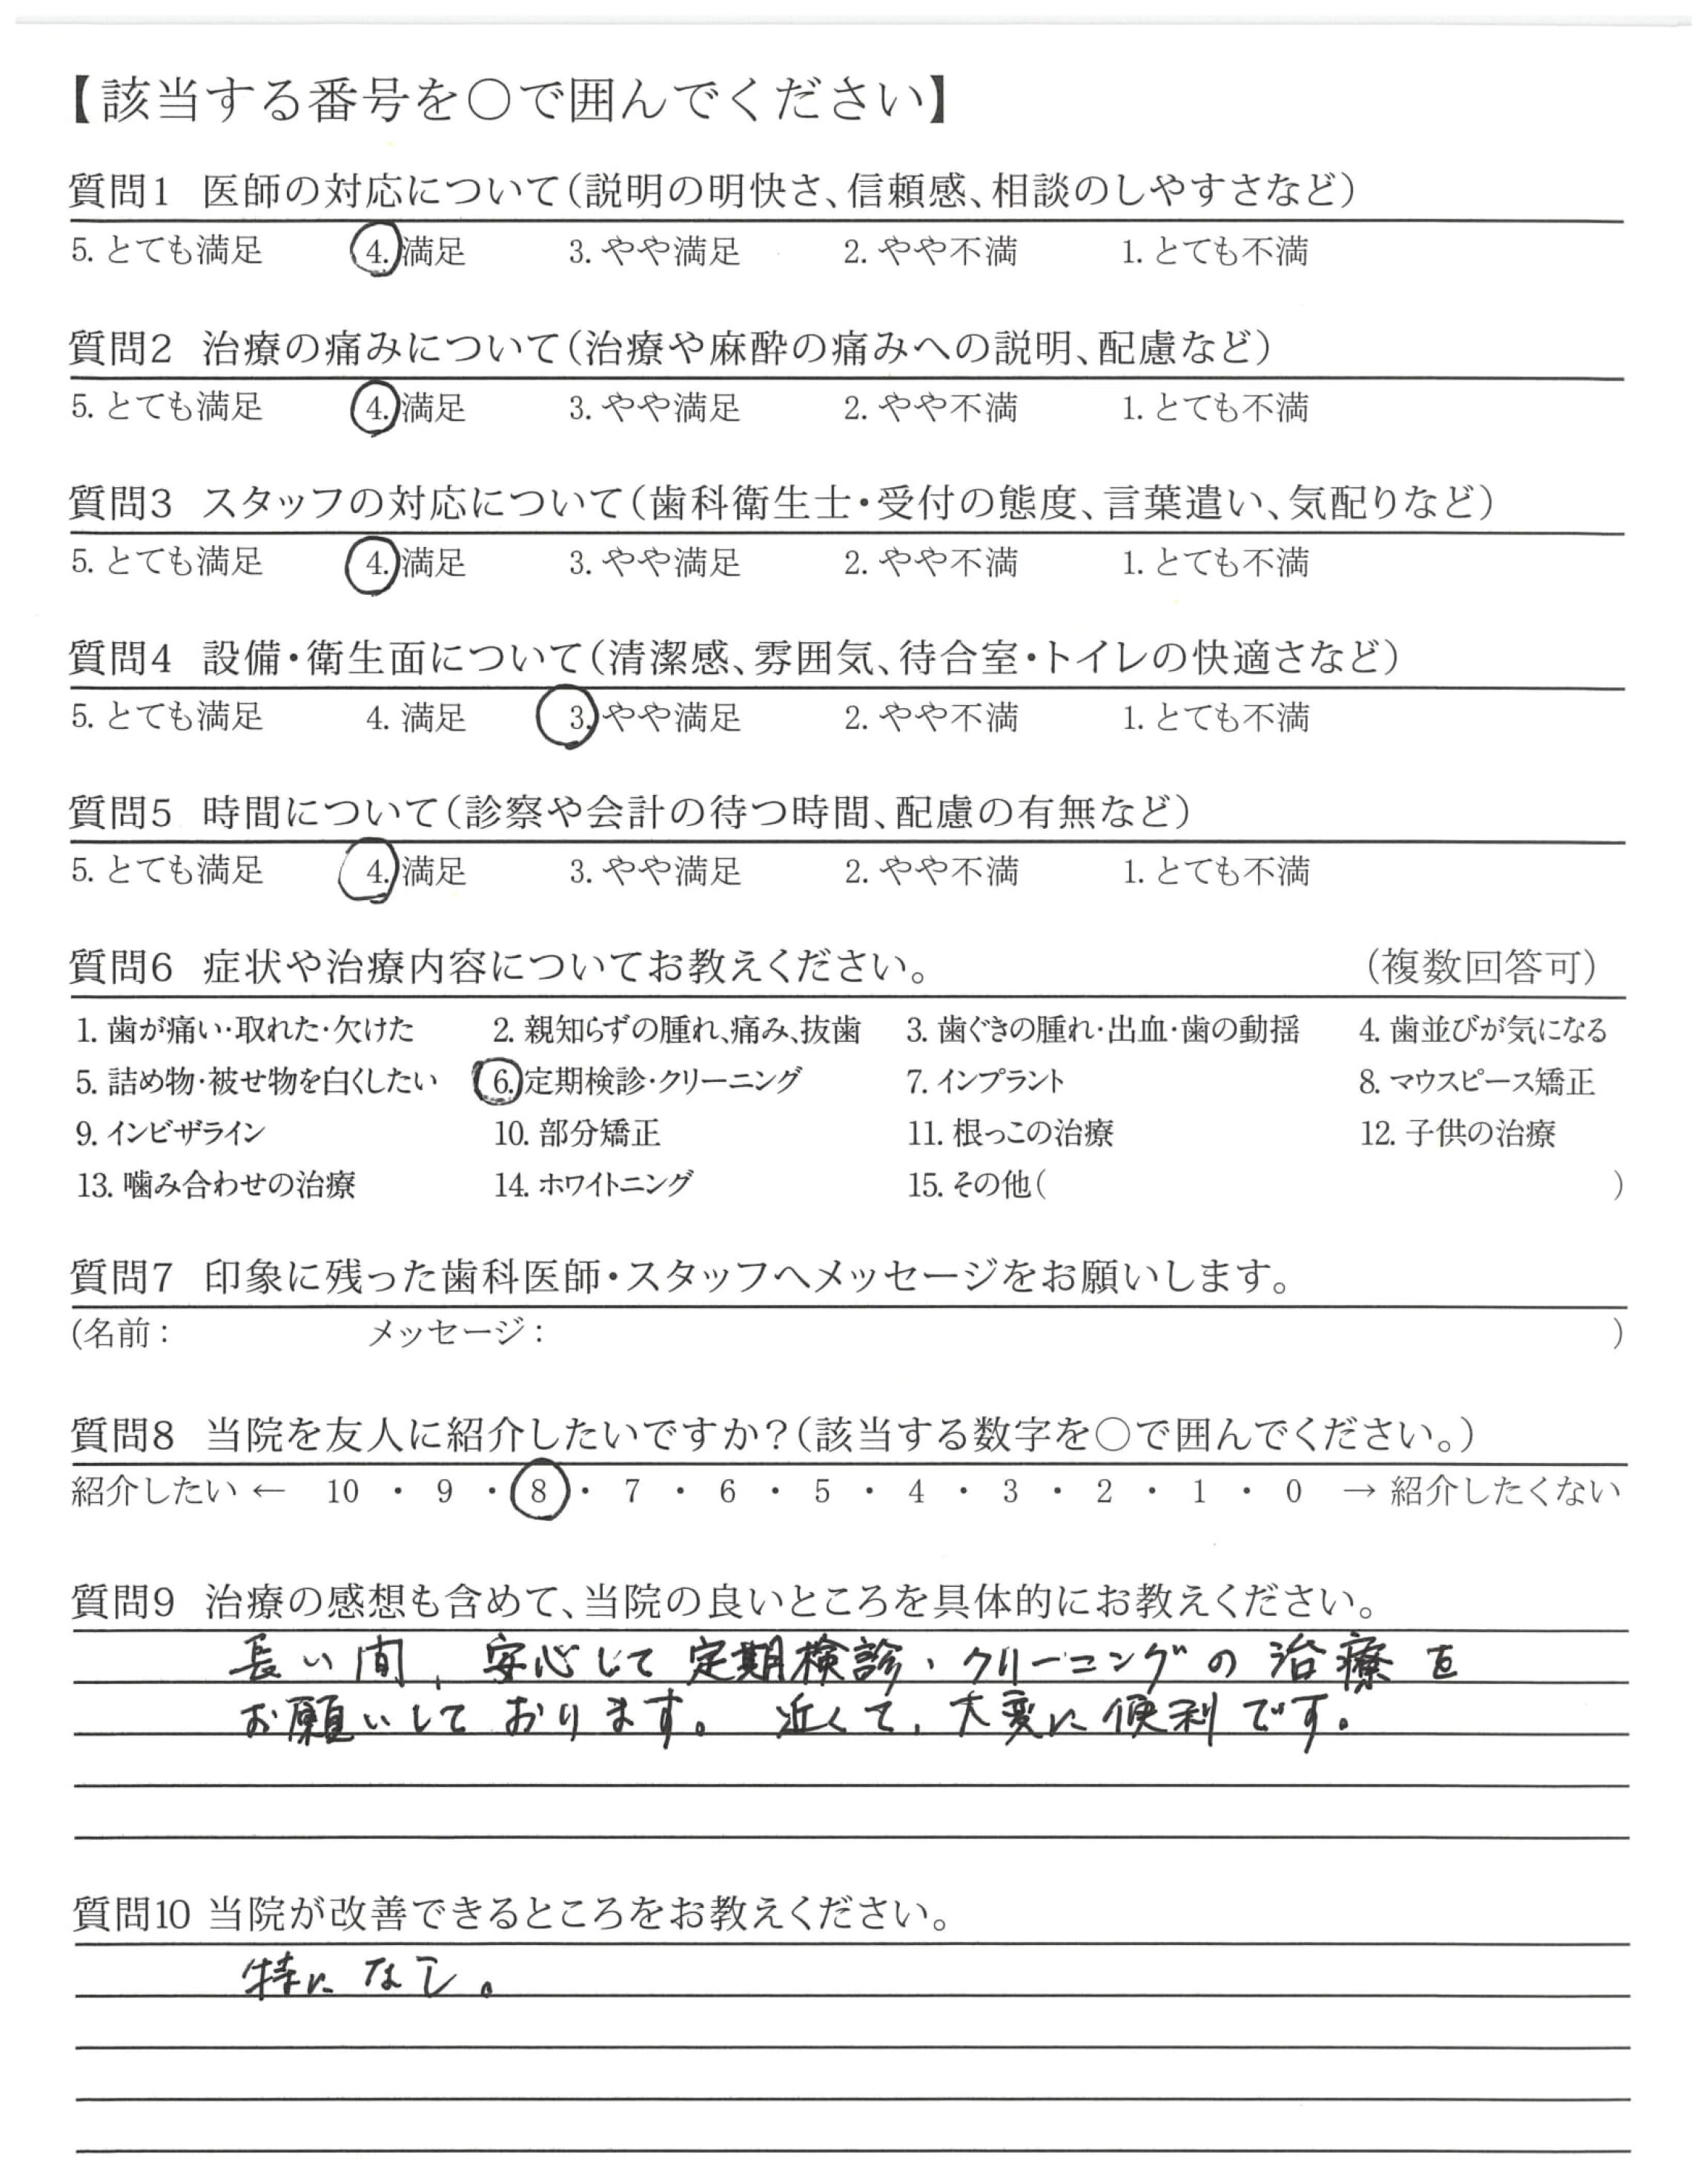 【該当する番号を○で囲んでください】
質問1 医師の対応について(説明の明快さ、信頼感、相談のしやすさなど)
5. とても満足 4. 満足 3. やや満足 2. やや不満 1. とても不満
質問2 治療の痛みについて(治療や麻酔の痛みへの説明、配慮など)
5. とても満足 4. 満足 3. やや満足 2. やや不満 1. とても不満
質問3 スタッフの対応について(歯科衛生士・受付の態度、言葉遣い、気配りなど)
5. とても満足 4. 満足 3. やや満足 2. やや不満 1. とても不満
質問4 設備・衛生面について(清潔感、雰囲気、待合室・トイレの快適さなど)
5. とても満足 4. 満足 3. やや満足 2. やや不満 1. とても不満
質問5 時間について(診察や会計の待つ時間、配慮の有無など)
5. とても満足 4. 満足 3. やや満足 2. やや不満 1. とても不満
質問6 症状や治療内容についてお教えください。 (複数回答可)
1. 歯が痛い・取れた・欠けた 2. 親知らずの腫れ、痛み、抜歯 3. 歯ぐきの腫れ・出血・歯の動揺 4. 歯並びが気になる
5. 詰め物・被せ物を白くしたい 6. 定期検診・クリーニング 7. インプラント 8. マウスピース矯正
9. インビザライン 10. 部分矯正 11. 根っこの治療 12. 子供の治療
13. 噛み合わせの治療 14. ホワイトニング 15. その他( )
質問7 印象に残った歯科医師・スタッフへメッセージをお願いします。
(名前: メッセージ: )
質問8 当院を友人に紹介したいですか?(該当する数字を○で囲んでください。)
紹介したい ← 10 ・ 9 ・ 8 ・ 7 ・ 6 ・ 5 ・ 4 ・ 3 ・ 2 ・ 1 ・ 0 → 紹介したくない
質問9 治療の感想も含めて、当院の良いところを具体的にお教えください。
長い間、安心して定期検診、クリーニングの治療を
お願いしております。近くて、大変に便利です。
質問10 当院が改善できるところをお教えください。
特になし。